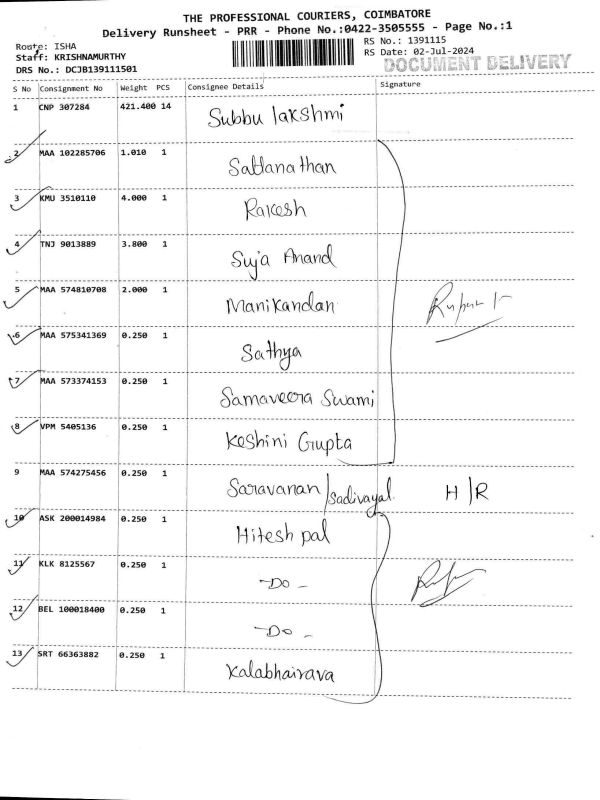 THE PROFESSIONAL COURIERS, COIMBATORE
Delivery Runsheet - PRR - Phone No.:0422-3505555 - Page No.:1
Route: ISHA
Staff: KRISHNAMURTHY
DRS No.: DCJB139111501
RS No.: 1391115
RS Date: 02-Jul-2024
DOCUMENT DELIVERY
S No Consignment No Weight PCS Consignee Details Signature
1 CNP 307284 421.400 14 Subbu lakshmi
2 MAA 102285706 1.010 1 Sattanathan
3 KMU 3510110 4.000 1 Rakesh
4 TNJ 9013889 3.800 1 Suja Anand
5 MAA 574810708 2.000 1 Manikandan
6 MAA 575341369 0.250 1 Sathya
7 MAA 573374153 0.250 1 Samaveera Swami
8 VPM 5405136 0.250 1 Keshini Gupta
9 MAA 574275456 0.250 1 Saravanan/Sadivayal. H/R
10 ASK 200014984 0.250 1 Hitesh pal
11 KLK 8125567 0.250 1 -Do-
12 BEL 100018400 0.250 1 -Do-
13 SRT 66363882 0.250 1 Kalabhairava